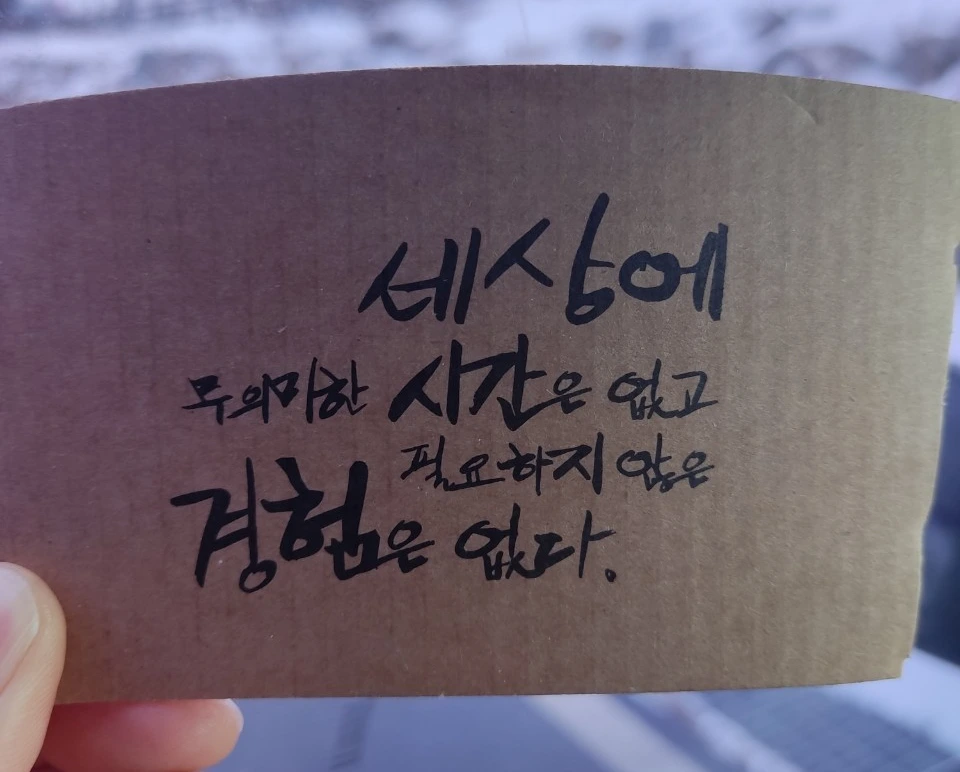 세상에
무의미한 시간은 없고
필요하지 않은
경험은 없다.